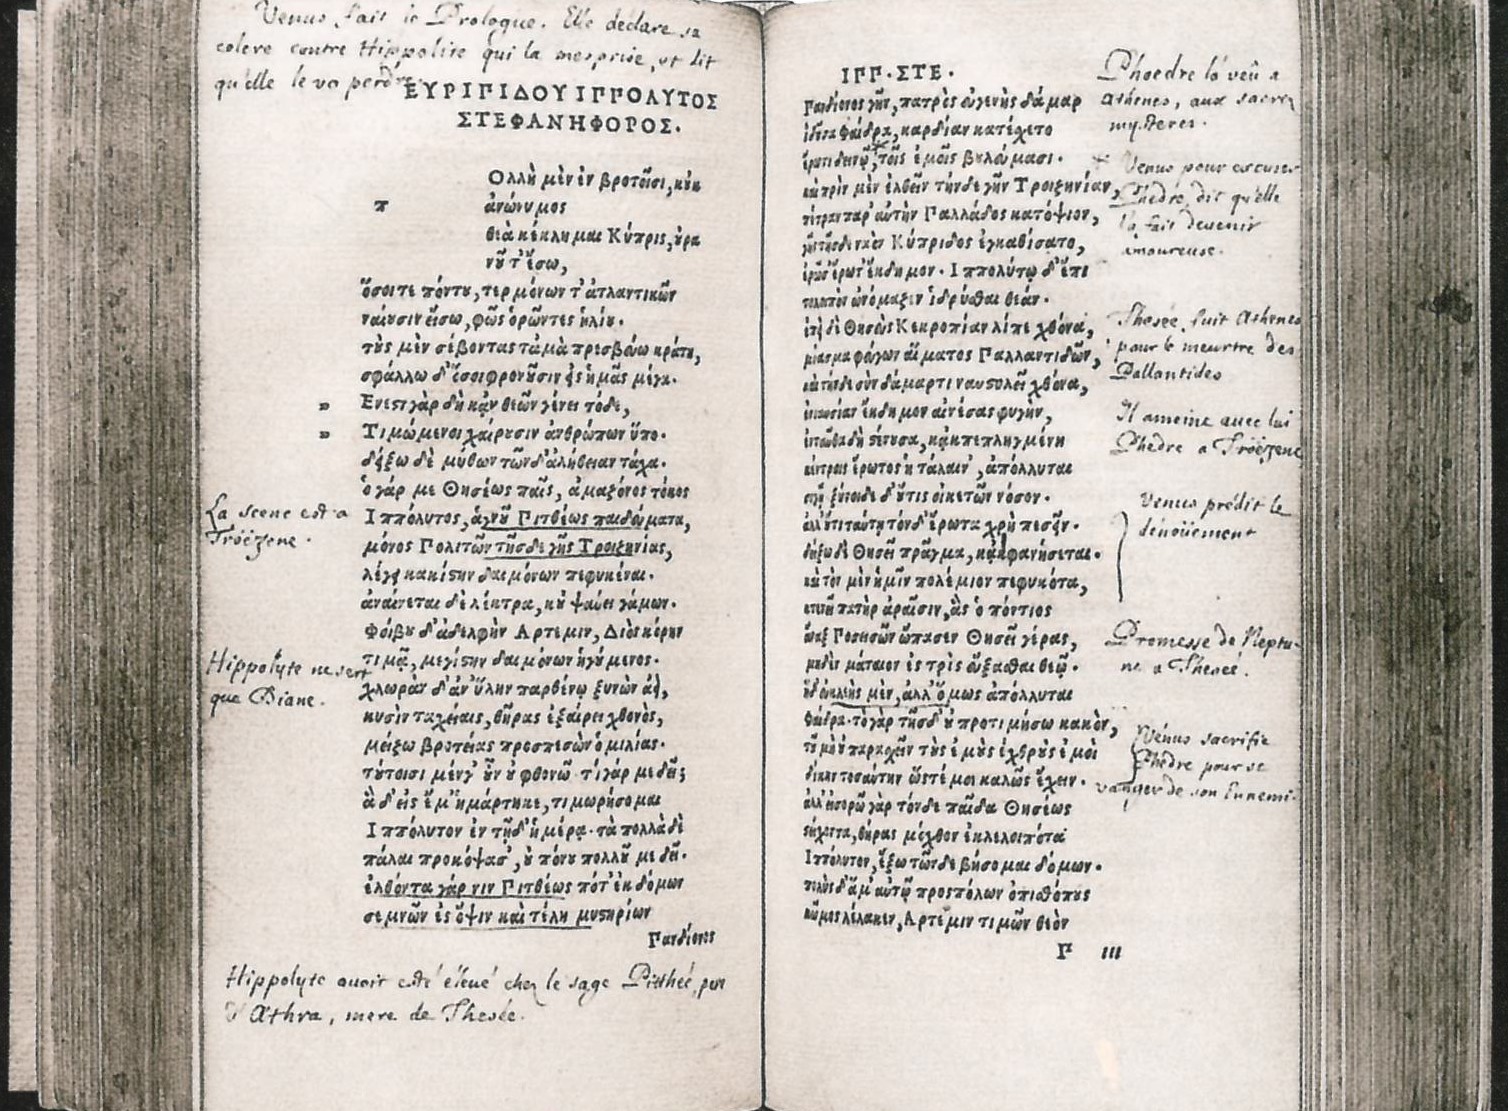 Venus fait le Prologue. Elle declare sa
colere contre Hippolite qui la mesprise, et dit
qu'elle le va perdre.
ΕΥΡΙΠΙΔΟΥ ΙΠΠΟΛΥΤΟΣ
ΣΤΕΦΑΝΗΦΟΡΟΣ.
Ολλὴ μὲν ἐν βροτοῖσι, κοὐκ
π ἀνώνυμος
θεὰ κέκλημαι Κύπρις, οὐρα
νοῦ τ' ἔσω,
ὅσοι τε πόντου, τερμόνων τ' ἀτλαντικῶν
ναίουσιν εἴσω, φῶς ὁρῶντες ἡλίου.
τοὺς μὲν σέβοντας τἀμὰ πρεσβεύω κράτη,
σφάλλω δ' ὅσοι φρονοῦσιν εἰς ἡμᾶς μέγα.
» Ενεστι γὰρ δὴ κἀν θεῶν γένει τόδε,
» Τιμώμενοι χαίρουσιν ἀνθρώπων ὕπο.
δείξω δὲ μύθων τῶνδ' ἀλήθειαν τάχα.
ὁ γάρ με Θησέως παῖς, ἀμαζόνος τόκος
La scene est a
Ιππόλυτος, ἁγνοῦ Πιτθέως παιδεύματα,
Tröezene.
μόνος Πολιτῶν τῆσδε γῆς Τροιζηνίας,
λέγει κακίστην δαιμόνων πεφυκέναι.
ἀναίνεται δὲ λέκτρα, κοὐ ψαύει γάμων.
Φοίβου δ' ἀδελφὴν Αρτεμιν, Διὸς κόρην
Hippolyte ne sert
τιμᾷ, μεγίστην δαιμόνων ἡγούμενος.
que Diane.
χλωρὰν δ' ἀν' ὕλην παρθένῳ ξυνὼν ἀεί,
κυσὶν ταχείαις, θῆρας ἐξαίρει χθονὸς,
μείζω βροτείας προσπεσὼν ὁμιλίας.
τούτοισι μέν γ' οὖν οὐ φθονῶ· τί γάρ με δεῖ;
ἃ δ' εἰς ἔμ' ἡμάρτηκε, τιμωρήσομαι
Ιππόλυτον ἐν τῇδ' ἡμέρᾳ. τὰ πολλὰ δὲ
πάλαι προκόψασ', οὐ πόνου πολλοῦ με δεῖ.
ἐλθόντα γάρ νιν Πιτθέως πότ' ἐκ δόμων
σεμνῶν ἐς ὄψιν καὶ τέλη μυστηρίων
Πανδίονος
Hippolyte avoit esté élevé chez le sage Pitthée, pere
d'Æthra, mere de Thesée.
ΙΠΠ. ΣΤΕ.
Πανδίονος γῆν, πατρὸς εὐγενὴς δάμαρ
ἰδοῦσα φαίδρα, καρδίαν κατέχετο
ἔρωτι δεινῷ, τοῖς ἐμοῖς βουλεύμασι.
καὶ πρὶν μὲν ἐλθεῖν τήνδε γῆν Τροιζηνίαν,
πέτραν παρ' αὐτὴν Παλλάδος κατόψιον,
γῆς τῆσδε ναὸν Κύπριδος ἐγκαθίσατο,
ἐρῶσ' ἔρωτ' ἔκδημον. Ιππολύτῳ δ' ἔπι
τολοιπὸν ὠνόμαζεν ἱδρύσθαι θεάν.
ἐπεὶ δὲ Θησεὺς Κεκροπίαν λίπε χθόνα,
μίασμα φεύγων αἵματος Παλλαντιδῶν,
καὶ τήνδε σὺν δάμαρτι ναυστολεῖ χθόνα,
ἐνιαυσίαν ἔκδημον αἰνέσας φυγὴν,
ἐνταῦθα δὴ στένουσα, κἀκπεπληγμένη
κέντροις ἔρωτος ἡ τάλαιν', ἀπόλλυται
σιγῇ, ξύνοιδε δ' οὔτις οἰκετῶν νόσον.
ἀλλ' οὔτι ταύτῃ τόνδ' ἔρωτα χρὴ πεσεῖν.
δείξω δὲ Θησεῖ πρᾶγμα, κἀκφανήσεται.
καὶ τὸν μὲν ἡμῖν πολέμιον πεφυκότα,
κτενεῖ πατὴρ ἀραῖσιν, ἃς ὁ πόντιος
ἄναξ Ποσειδῶν ὤπασεν Θησεῖ γέρας,
μηδὲν μάταιον ἐς τρὶς εὔξασθαι θεῷ.
ἡ δ' εὐκλεὴς μὲν, ἀλλ' ὅμως ἀπόλλυται
φαίδρα· τὸ γὰρ τῆσδ' οὐ προτιμήσω κακὸν,
τὸ μὴ οὐ παρασχεῖν τοὺς ἐμοὺς ἐχθροὺς ἐμοὶ
δίκην τοσαύτην ὥστέ μοι καλῶς ἔχειν.
ἀλλ' εἰσορῶ γὰρ τόνδε παῖδα Θησέως
στείχοντα, θήρας μόχθον ἐκλελοιπότα
Ιππόλυτον, ἔξω τῶνδε βήσομαι δόμων.
πολὺς δ' ἅμ' αὐτῷ προσπόλων ὀπισθόπους
κῶμος λέλακεν, Αρτεμιν τιμῶν θεὸν
Γ III
Phoedre l'a veû a
Athenes, aux sacrez
mysteres.
Venus pour excuser
Phedre, dit qu'elle
l'a fait devenir
amoureuse.
Thesée fuit Athenes
pour le meurtre des
Pallantides
Il ameine avec lui
Phedre a Tröezene
Venus prédit le
dénoüement
Promesse de Neptu-
ne a Thesée.
Vénus sacrifie
Phedre pour se
vanger de son Ennemi.